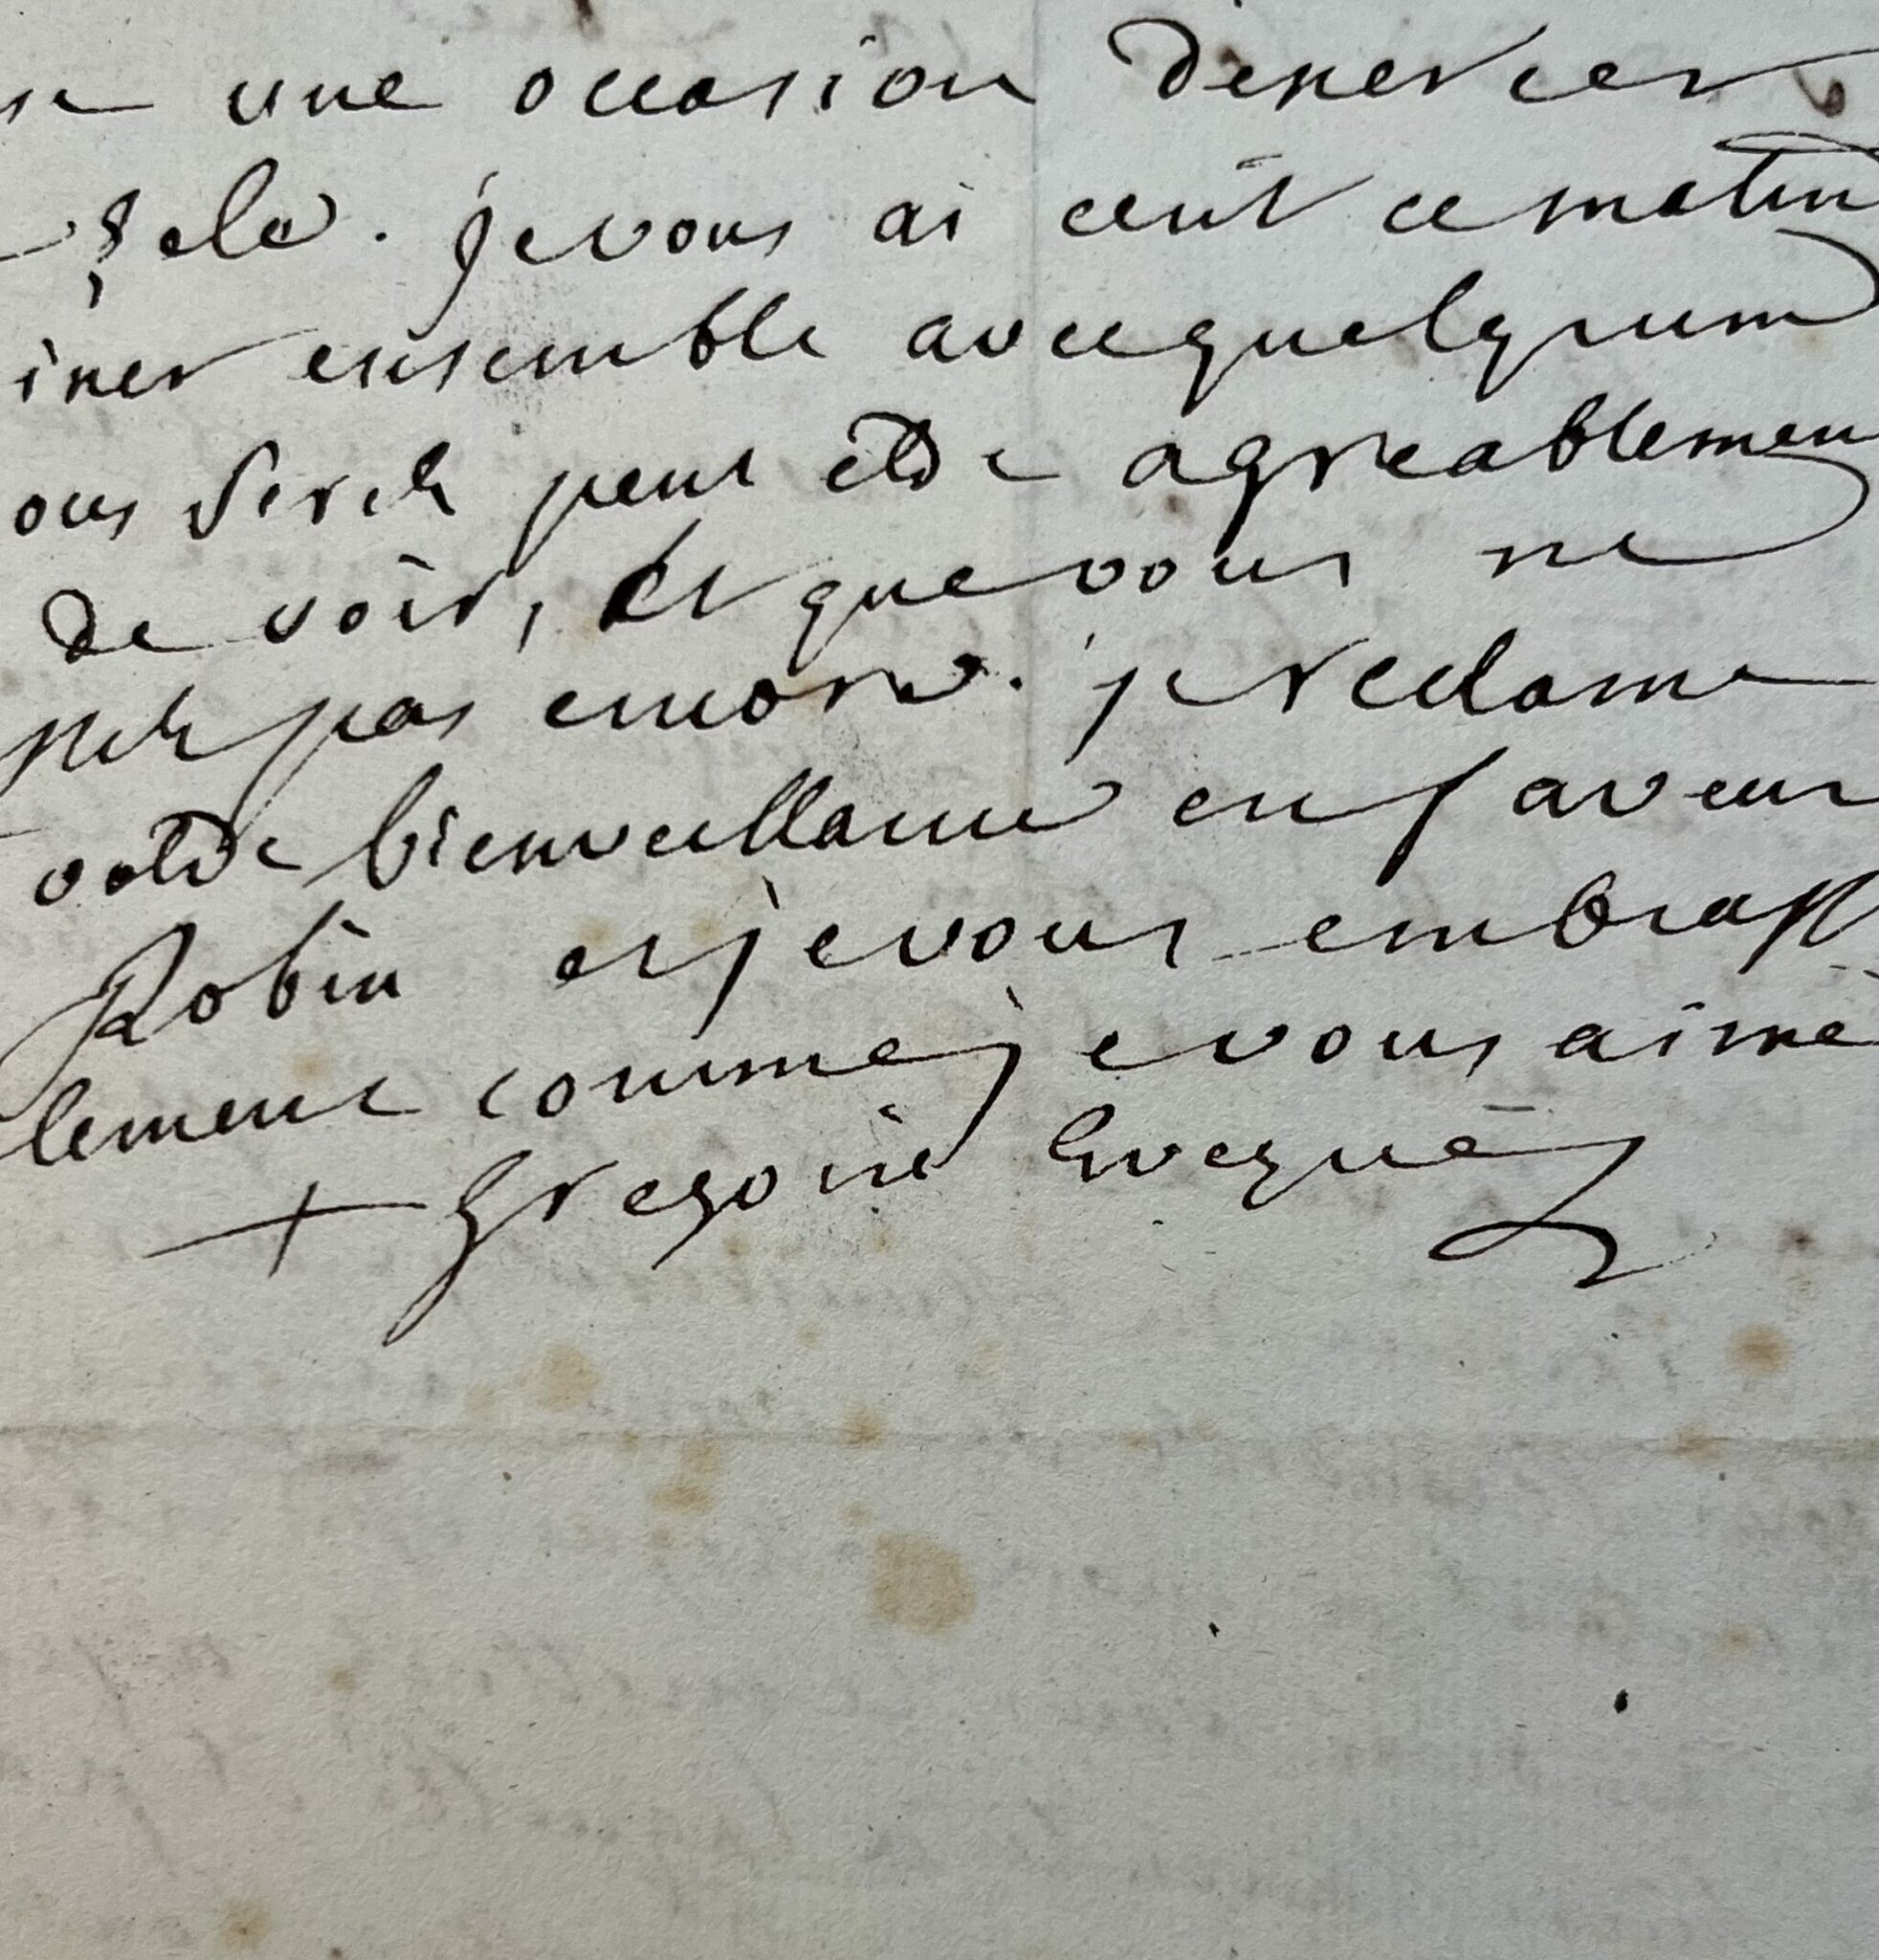 une occasion d'exercer
zele. je vous ai ecrit ce matin
iner ensemble avec quelqu'un
ous serez peut etre agreablemen
de voir, et que vous ne
pas encore. je reclame
votre bienveillance en faveur
Robin et je vous embrasse
lement comme je vous aime
+ Gregoire Eveque